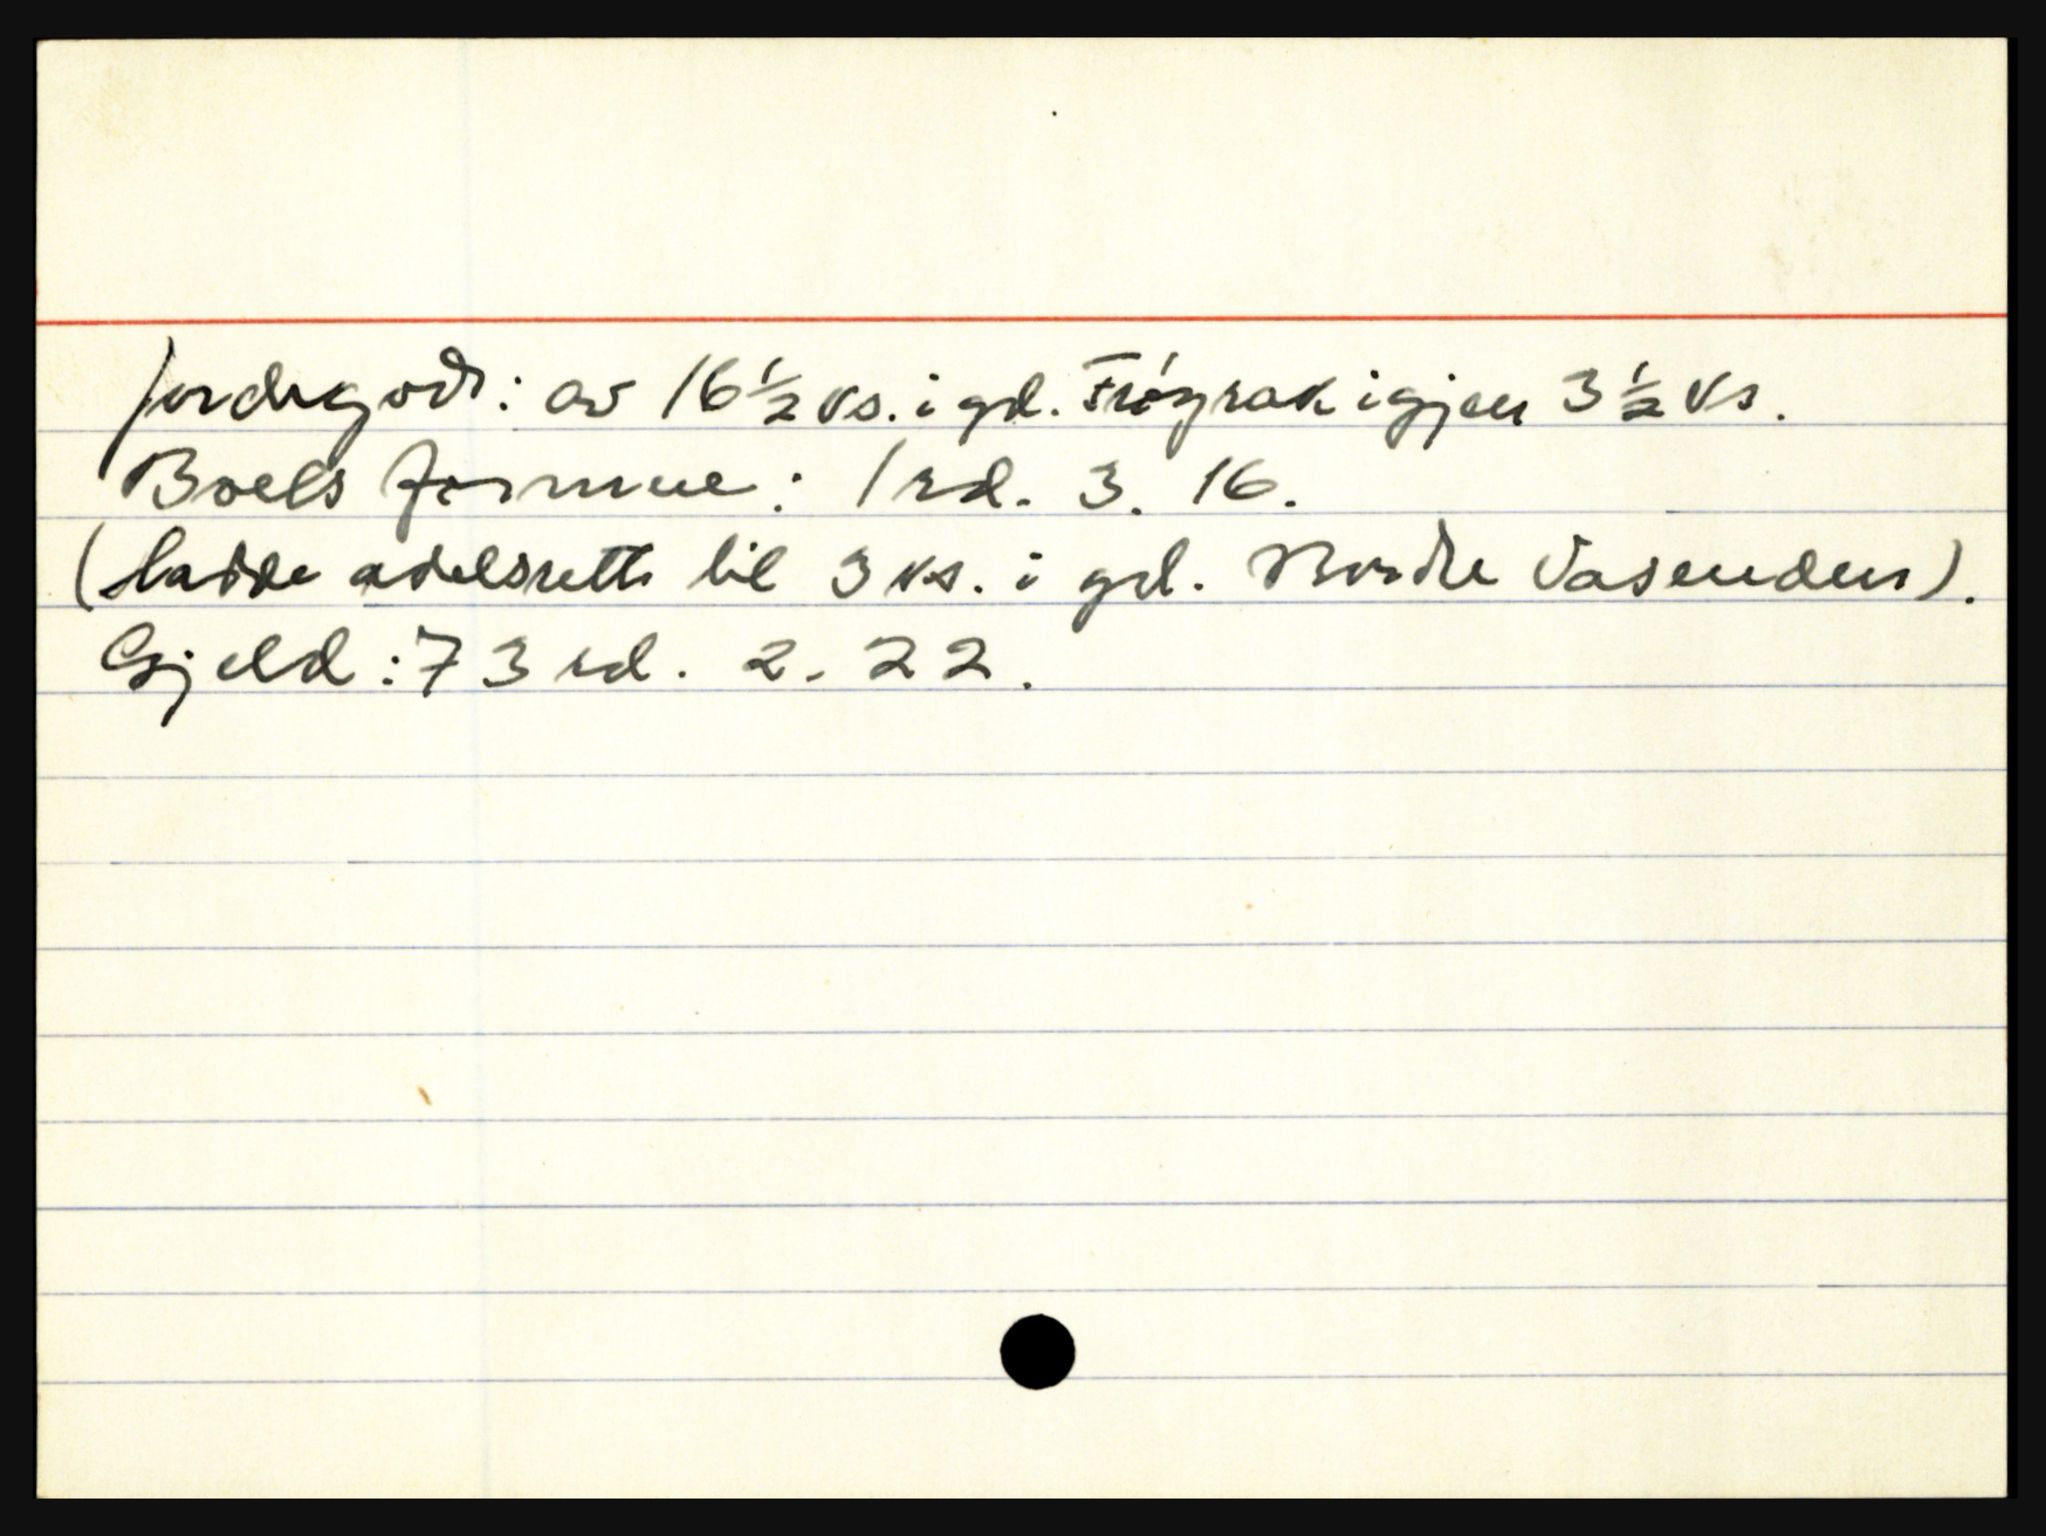 Jordegods: av 16½ ks. i gd. Frøyrak igjen 3½ ks.
Boets formue: 1 rd. 3. 16.
(hadde odelsrett til 3 ks. i gd. Nordre Vasenden).
Gjeld: 73 rd. 2. 22.